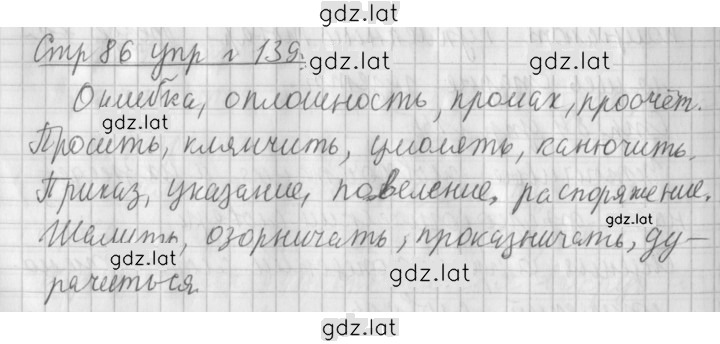 gdz.lat
Стр 86 упр г 139.
gdz.lat
gdz.lat
Ошибка, оплошность, промах, просчёт.
gdz.lat
Просить, клянчить, умолять, канючить.
Приказ, указание, повеление, распоряжение.
gdz.lat
Шалить, озорничать, проказничать, ду-
gdz.lat
gdz.lat
рачиться.
gdz.lat